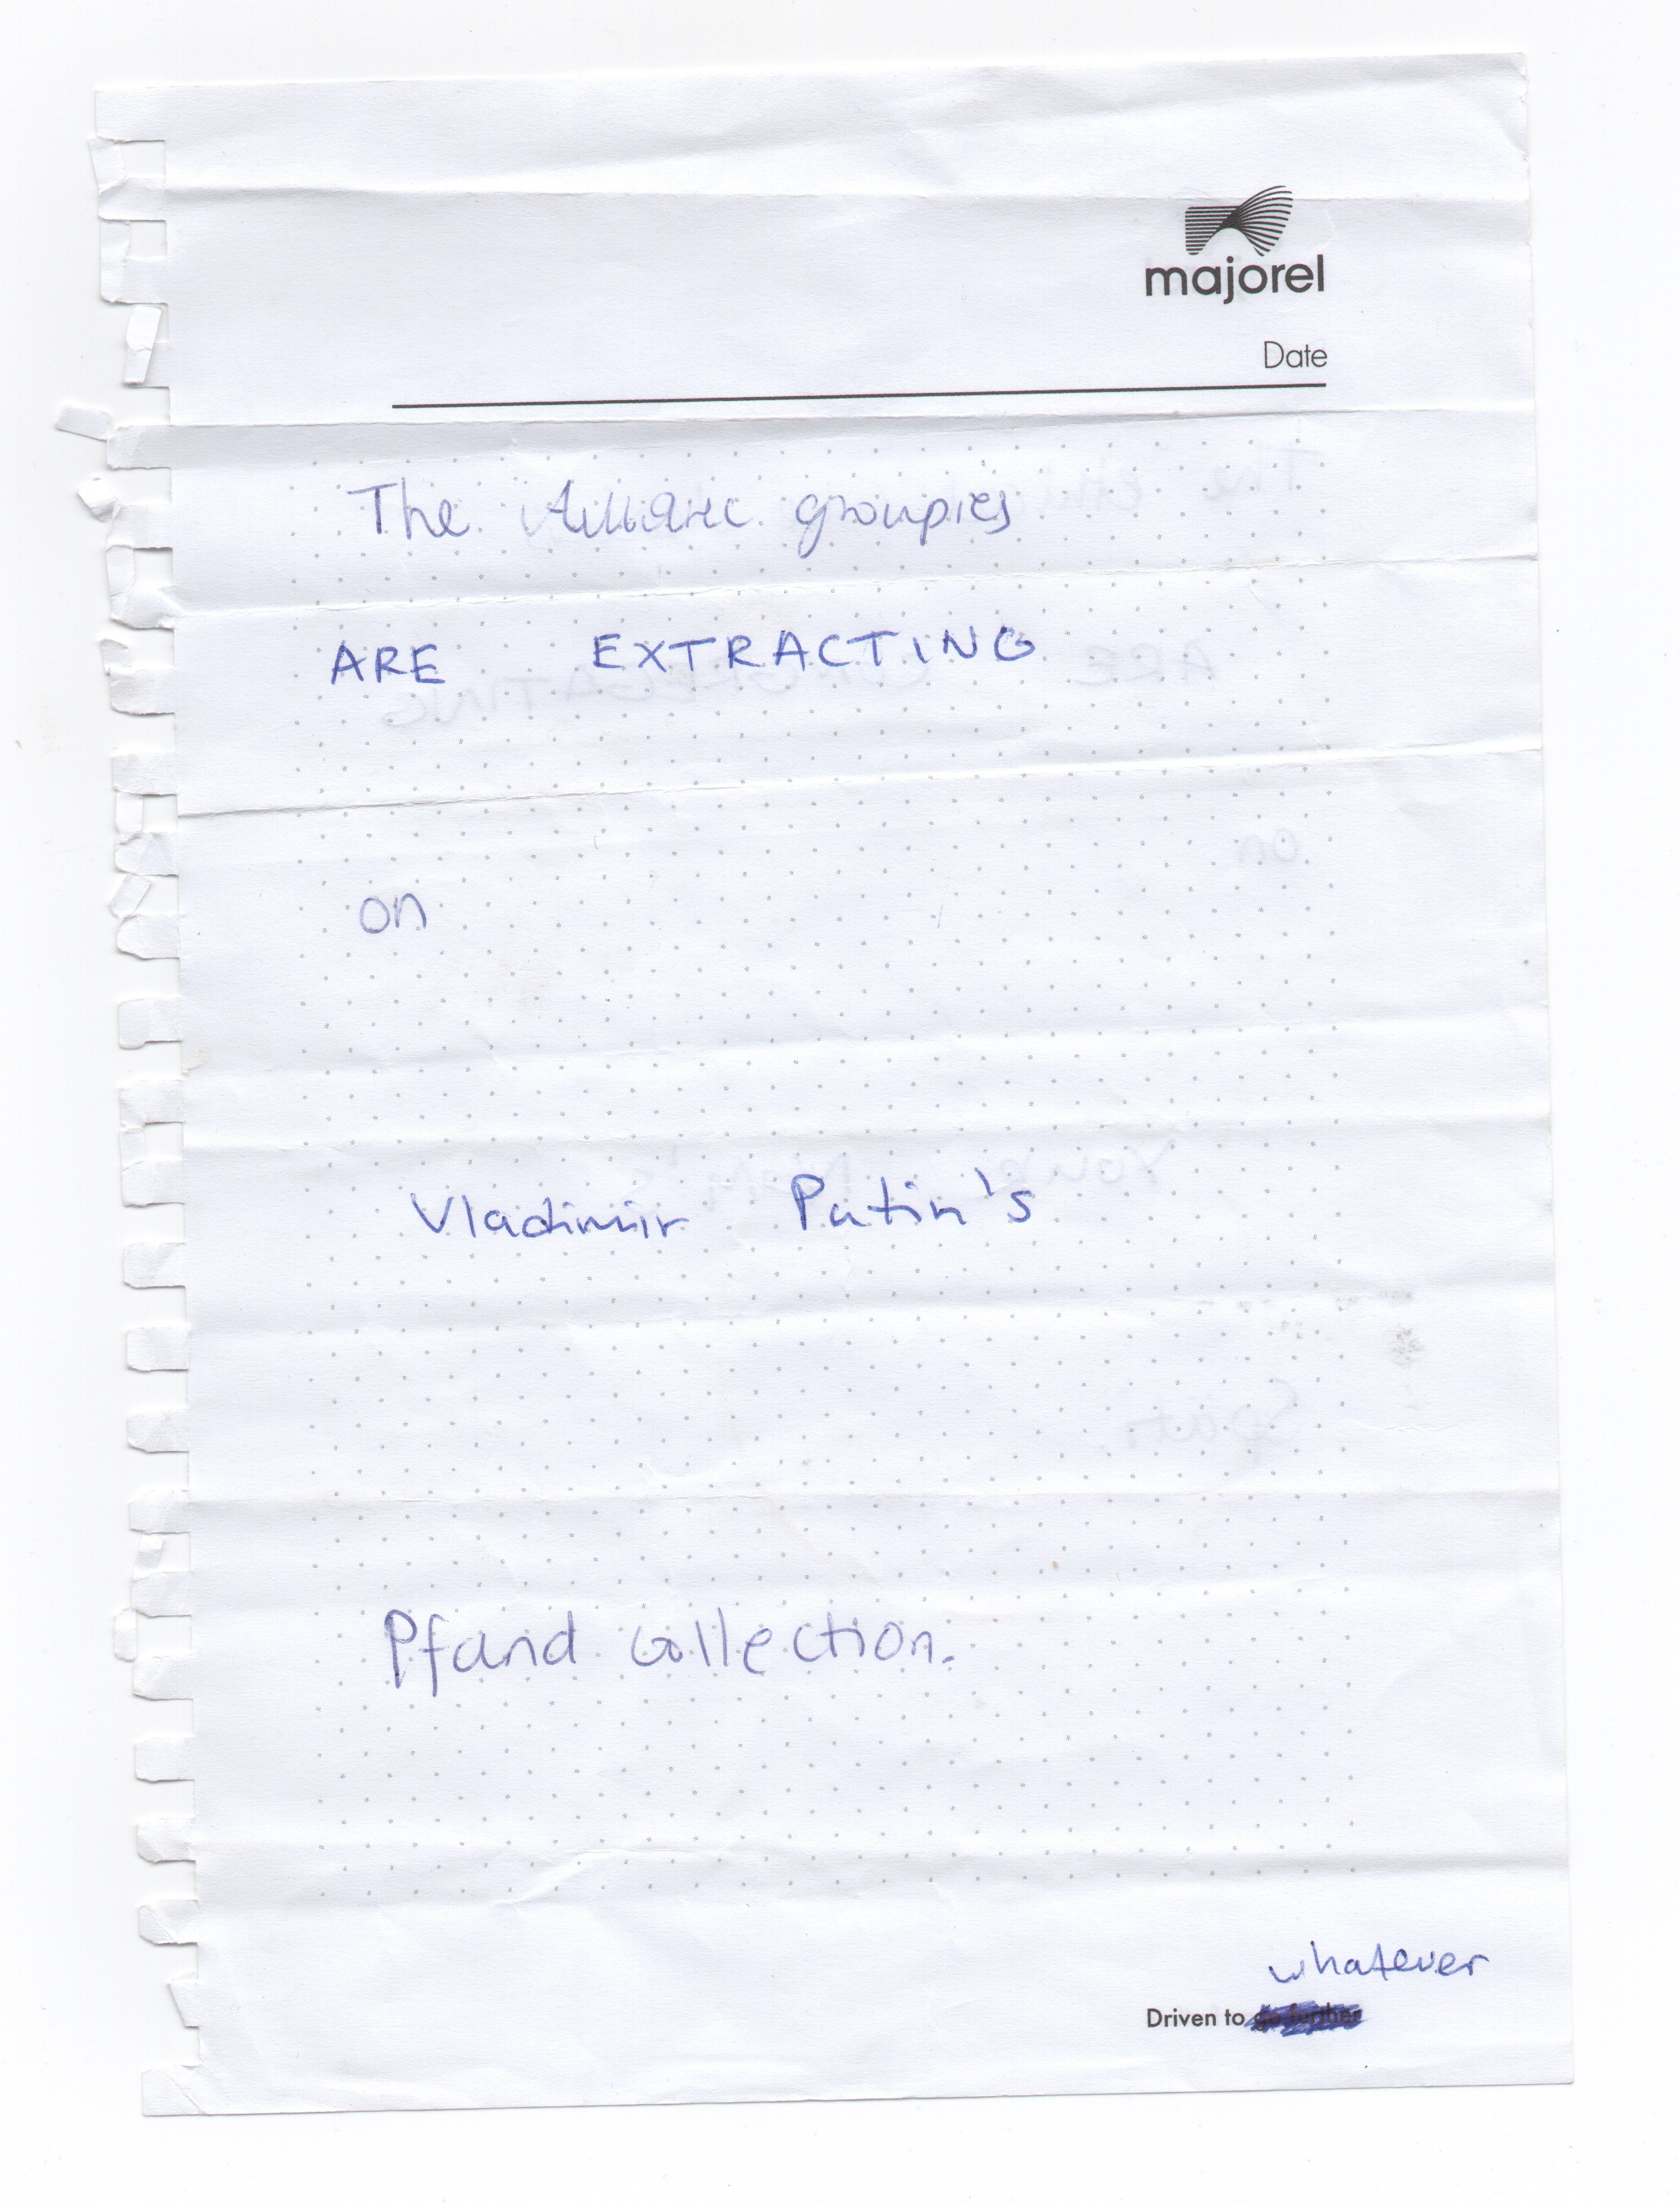 majorel
Date
The groupies
ARE EXTRACTING
on
Vladimir Putin's
Pfand collection.
whatever
Driven to go further